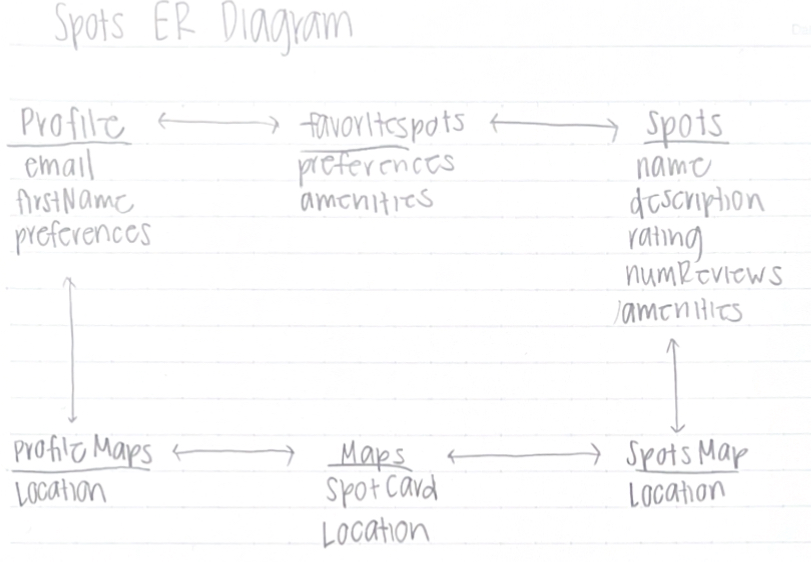 Spots ER Diagram
Profile
email
firstName
preferences
favoritespots
preferences
amenities
Spots
name
description
rating
numReviews
amenities
Profile Maps
Location
Maps
Spot Card
Location
Spots Map
Location